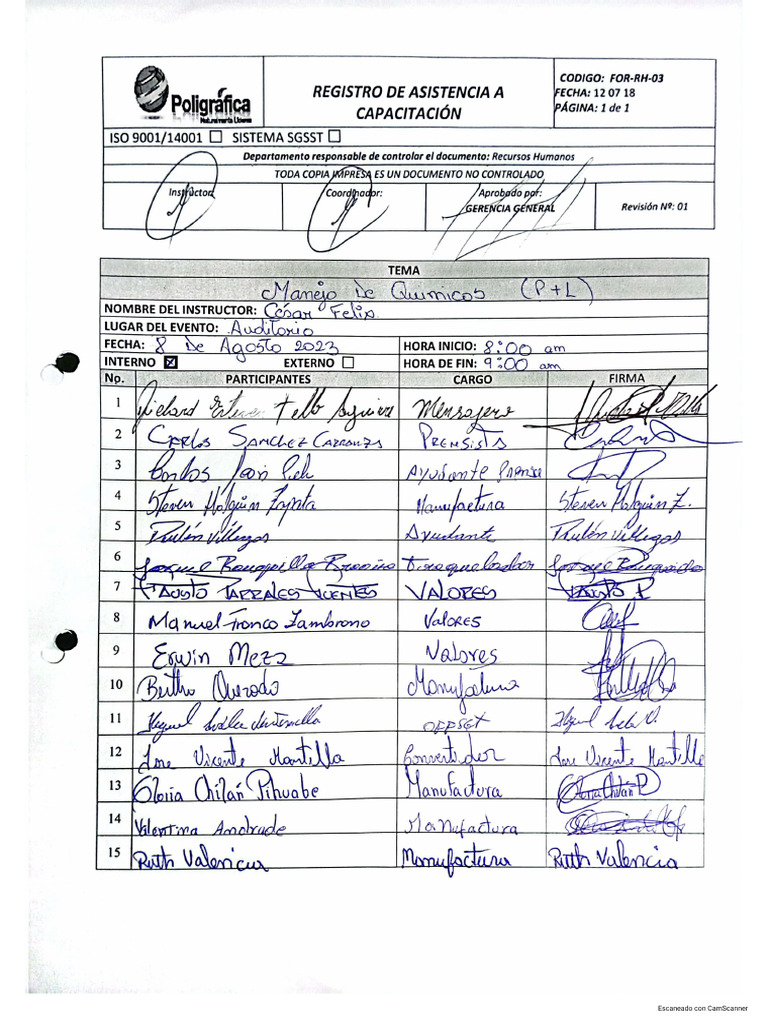 Poligráfica
Naturalmente Líderes
REGISTRO DE ASISTENCIA A
CAPACITACIÓN
CODIGO: FOR-RH-03
FECHA: 12 07 18
PÁGINA: 1 de 1
ISO 9001/14001 ☐ SISTEMA SGSST ☐
Departamento responsable de controlar el documento: Recursos Humanos
TODA COPIA IMPRESA ES UN DOCUMENTO NO CONTROLADO
Instructor: Coordinador: Aprobado por:
GERENCIA GENERAL
Revisión Nº: 01
TEMA
Manejo De Quimicos (P+L)
NOMBRE DEL INSTRUCTOR: César Felix
LUGAR DEL EVENTO: Auditorio
FECHA: 8 De Agosto 2023 HORA INICIO: 8:00 am
INTERNO ☒ EXTERNO ☐ HORA DE FIN: 9:00 am
No. PARTICIPANTES CARGO FIRMA
1 Richard Tello Mensajero
2 Carlos Sanchez Carranza Prensista
3 Carlos Ayudante Prensa
4 Steven Holguin Zapata Manufactura Steven Holguin Z.
5 Rubén Villegas Ayudante Rubén Villegas
6 Troquelador
7 Fausto Parrales Fuentes VALORES Fausto P
8 Manuel Franco Zambrano Valores
9 Erwin Meza Valores
10 Bertha Quezada Manufactura
11 Miguel OFFSET Miguel
12 Jose Vicente Mantilla Convertidor Jose Vicente Mantilla
13 Gloria Chilán Pihuabe Manufactura Gloria Chilán P
14 Valentina Andrade Manufactura
15 Ruth Valencia Manufactura Ruth Valencia
Escaneado con CamScanner